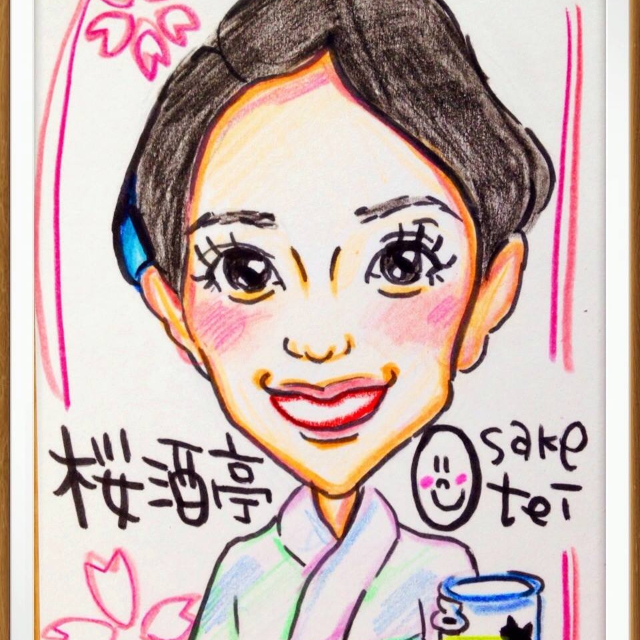 桜酒亭
sake
tei